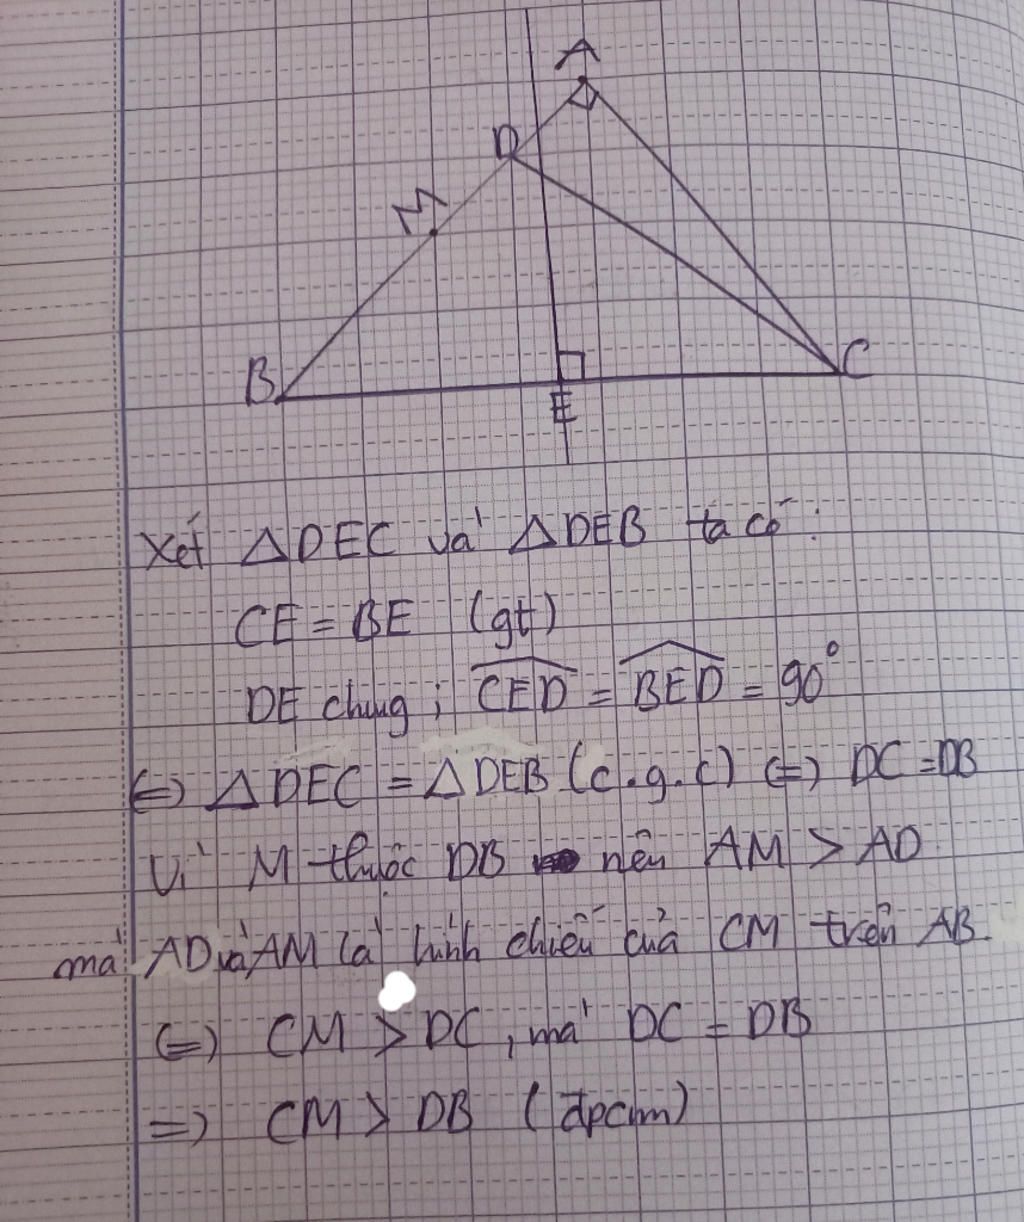 A
D
M
B
C
E
Xét △DEC và △DEB ta có:
CE = BE (gt)
DE chung; CED = BED = 90°
(=) △DEC = △DEB (c.g.c) (=) DC = DB
Vì M thuộc DB nên AM > AD
mà AD và AM là hình chiếu của CM trên AB
(=) CM > DC, mà DC = DB
=) CM > DB (đpcm)